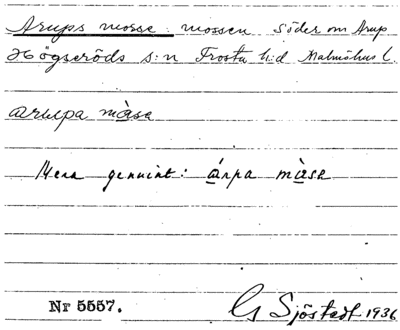 Arups mosse: mossen söder om Arup
Högseröds s:n Frosta h:d Malmöhus l.
arupa màsa
Mera genuint: árpa màsa
Nr 5557.
G Sjöstedt 1936